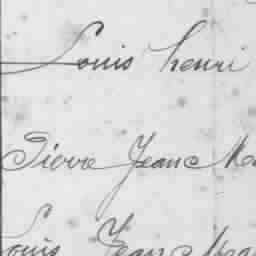 Louis henri
Pierre Jean Ma
Louis Jean Ma